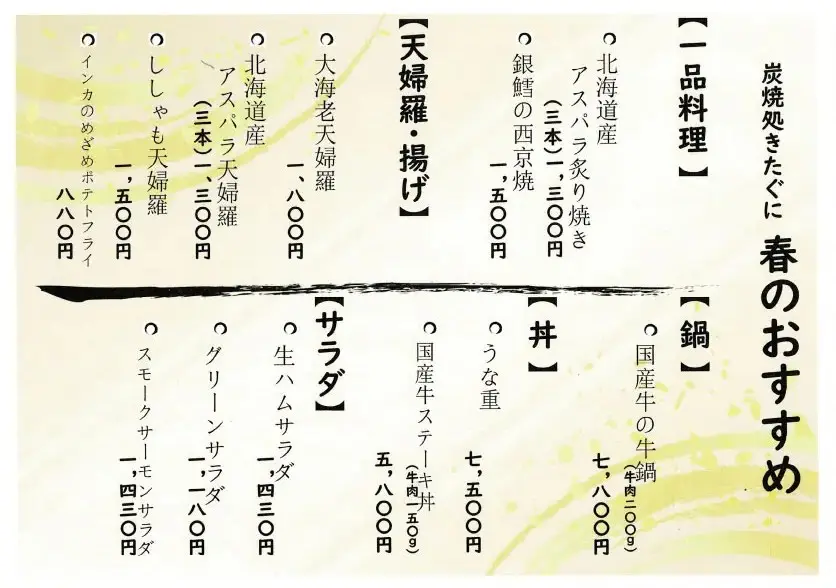 炭焼処きたぐに
春のおすすめ
【一品料理】
北海道産
アスパラ炙り焼き
(三本)一,三〇〇円
銀鱈の西京焼
一,五〇〇円
【天婦羅・揚げ】
大海老天婦羅
一、八〇〇円
北海道産
アスパラ天婦羅
(三本)一、三〇〇円
ししゃも天婦羅
一,五〇〇円
インカのめざめポテトフライ
八八〇円
【鍋】
国産牛の牛鍋
(牛肉二〇〇g)
七,八〇〇円
【丼】
うな重
七,五〇〇円
国産牛ステーキ丼
(牛肉一五〇g)
五,八〇〇円
【サラダ】
生ハムサラダ
一,四三〇円
グリーンサラダ
一,一八〇円
スモークサーモンサラダ
一,四三〇円